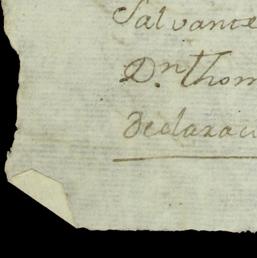 Salvante
Dn. Thom
Declarac